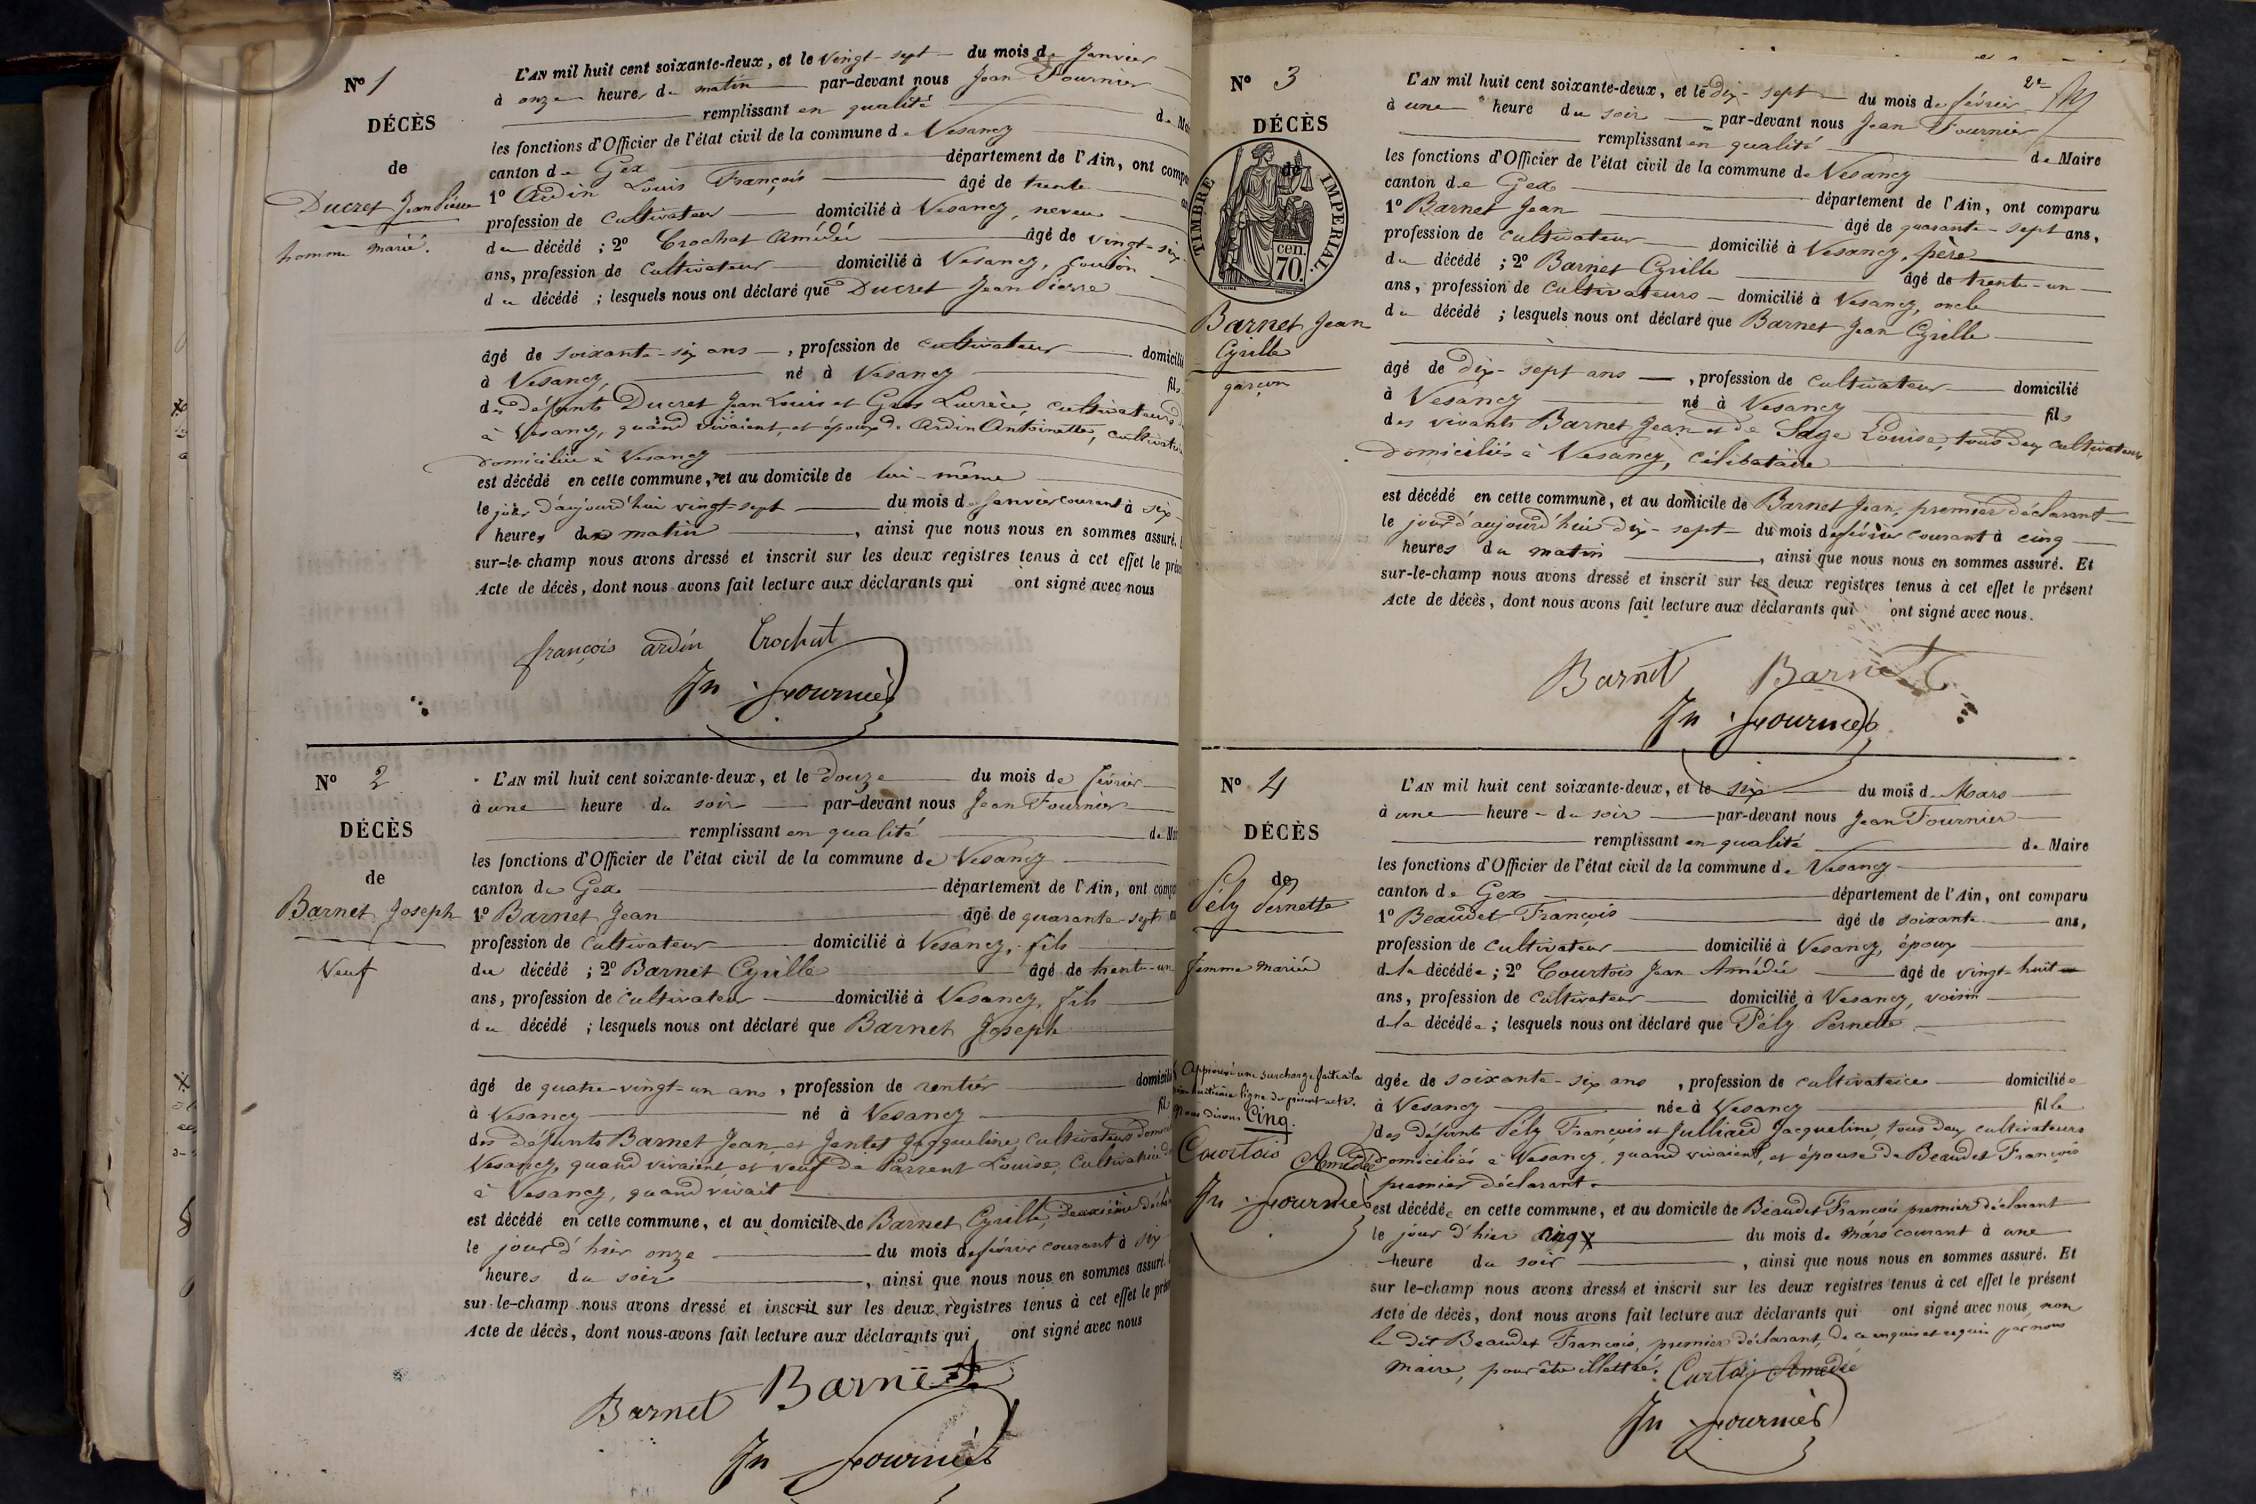 N° 1
DÉCÈS
de
Ducret Jean Pierre
homme marié.
L'AN mil huit cent soixante-deux, et le vingt-sept du mois de Janvier
à onze heures du matin par-devant nous Jean Fournier
remplissant en qualité de Mai
les fonctions d'Officier de l'état civil de la commune de Vesancy
canton de Gex département de l'Ain, ont compa
1° Ardin Louis François âgé de trente
profession de cultivateur domicilié à Vesancy, neveu
du décédé ; 2° Crochat Amédée âgé de vingt-six
ans, profession de cultivateur domicilié à Vesancy, cousin
du décédé ; lesquels nous ont déclaré que Ducret Jean Pierre
âgé de soixante-six ans, profession de cultivateur domicilié
à Vesancy, né à Vesancy fils
des défunts Ducret Jean Louis et Gros Lucrèce, cultivateurs
à Vesancy, quand vivaient, et époux de Ardin Antoinette, cultivatri
domiciliée à Vesancy
est décédé en cette commune, et au domicile de lui-même
le jour d'aujourd'hui vingt-sept du mois de Janvier courant à six
heures du matin, ainsi que nous nous en sommes assuré.
sur-le-champ nous avons dressé et inscrit sur les deux registres tenus à cet effet le prés
Acte de décès, dont nous avons fait lecture aux déclarants qui ont signé avec nous
françois ardin Crochat
Jn Fournier
N° 2
DÉCÈS
de
Barnet Joseph
Veuf
L'AN mil huit cent soixante-deux, et le douze du mois de février
à une heure du soir par-devant nous Jean Fournier
remplissant en qualité de Mai
les fonctions d'Officier de l'état civil de la commune de Vesancy
canton de Gex département de l'Ain, ont compa
1° Barnet Jean âgé de quarante-sept an
profession de cultivateur domicilié à Vesancy, fils
du décédé ; 2° Barnet Cyrille âgé de trente-un
ans, profession de cultivateur domicilié à Vesancy, fils
du décédé ; lesquels nous ont déclaré que Barnet Joseph
âgé de quatre-vingt-un ans, profession de rentier domicilié
à Vesancy né à Vesancy fil
des défunts Barnet Jean et Jantet Jacqueline, cultivateurs
Vesancy, quand vivaient et veuf de Parrent Louise, cultivatrice
à Vesancy, quand vivait
est décédé en cette commune, et au domicile de Barnet Cyrille, deuxième décla
le jour d'hier onze du mois de février courant à six
heures du soir, ainsi que nous nous en sommes assuré.
sur-le-champ nous avons dressé et inscrit sur les deux registres tenus à cet effet le prés
Acte de décès, dont nous avons fait lecture aux déclarants qui ont signé avec nous
Barnet Barnet
Jn Fournier
2e
N° 3
DÉCÈS
de
TIMBRE IMPERIAL.
cen.
70
Barnet Jean
Cyrille
garçon
L'AN mil huit cent soixante-deux, et le dix-sept du mois de février
à une heure du soir par-devant nous Jean Fournier
remplissant en qualité de Maire
les fonctions d'Officier de l'état civil de la commune de Vesancy
canton de Gex département de l'Ain, ont comparu
1° Barnet Jean âgé de quarante-sept ans,
profession de cultivateur domicilié à Vesancy, père
du décédé ; 2° Barnet Cyrille âgé de trente-un
ans, profession de cultivateurs domicilié à Vesancy, oncle
du décédé ; lesquels nous ont déclaré que Barnet Jean Cyrille
âgé de dix-sept ans, profession de cultivateur domicilié
à Vesancy né à Vesancy fils
des vivants Barnet Jean et de Sage Louise, tous deux cultivateurs
domiciliés à Vesancy, célibataire
est décédé en cette commune, et au domicile de Barnet Jean, premier déclarant
le jour d'aujourd'hui dix-sept du mois de février courant à cinq
heures du matin, ainsi que nous nous en sommes assuré. Et
sur-le-champ nous avons dressé et inscrit sur les deux registres tenus à cet effet le présent
Acte de décès, dont nous avons fait lecture aux déclarants qui ont signé avec nous.
Barnet Barnet
Jn Fournier
N° 4
DÉCÈS
de
Pély Pernette
femme mariée
Approuvé une surcharge faite à la
huitième ligne du présent acte.
nous disons Cinq.
Courtois Amédée
Jn Fournier
L'AN mil huit cent soixante-deux, et le six du mois de Mars
à une heure du soir par-devant nous Jean Fournier
remplissant en qualité de Maire
les fonctions d'Officier de l'état civil de la commune de Vesancy
canton de Gex département de l'Ain, ont comparu
1° Beaudet François âgé de soixante ans,
profession de cultivateur domicilié à Vesancy, époux
de la décédée ; 2° Courtois Jean Amédée âgé de vingt-huit
ans, profession de cultivateur domicilié à Vesancy, voisin
de la décédée ; lesquels nous ont déclaré que Pély Pernette
âgée de soixante-six ans, profession de cultivatrice domiciliée
à Vesancy née à Vesancy fille
des défunts Pély François et Julliard Jacqueline, tous deux cultivateurs
domiciliés à Vesancy, quand vivaient, et épouse de Beaudet François
premier déclarant
est décédée en cette commune, et au domicile de Beaudet François premier déclarant
le jour d'hier cinq du mois de mars courant à une
heure du soir, ainsi que nous nous en sommes assuré. Et
sur le-champ nous avons dressé et inscrit sur les deux registres tenus à cet effet le présent
Acte de décès, dont nous avons fait lecture aux déclarants qui ont signé avec nous, non
le dit Beaudet François, premier déclarant, de ce enquis et requis par nous
Maire, pour être illettré. Curtois Amédée
Jn Fournier